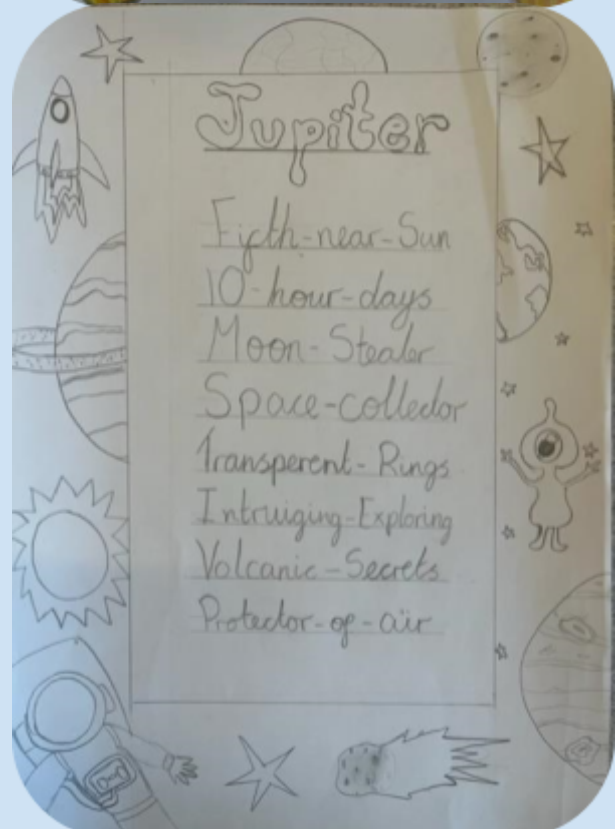 Jupiter
Fifth-near-Sun
10-hour-days
Moon-Stealer
Space-collector
Transperent-Rings
Intruiging-Exploring
Volcanic-Secrets
Protector-of-air